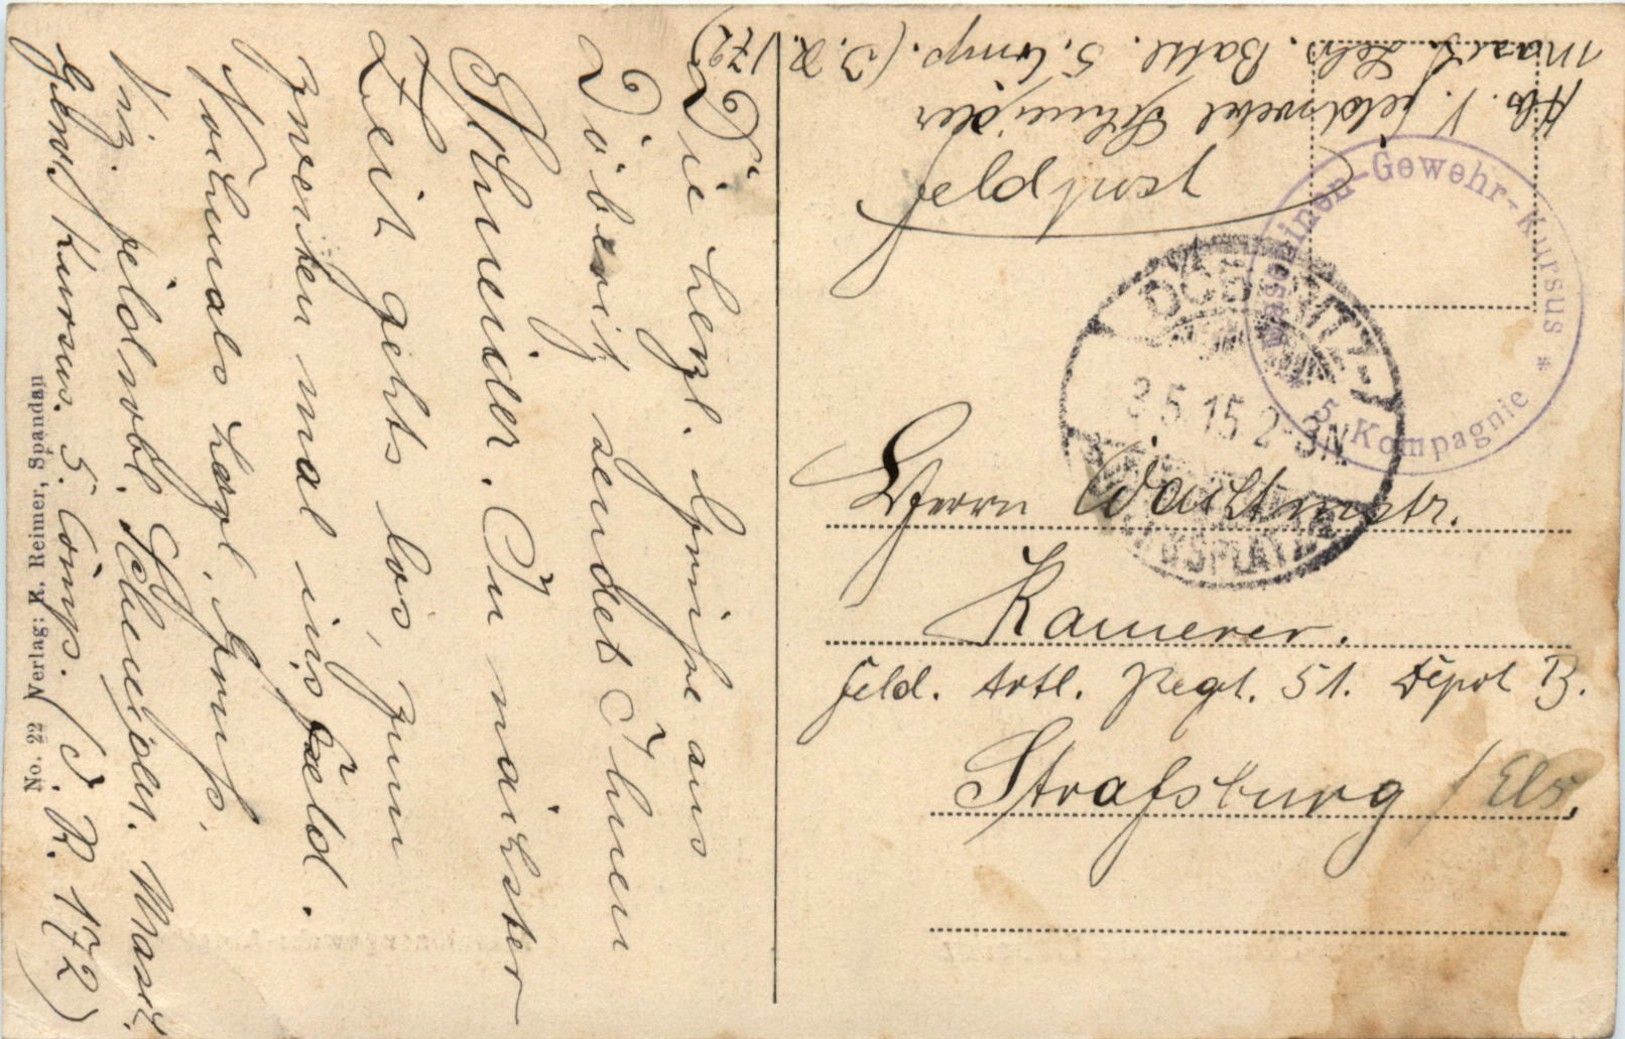 Die herzl. Grüße aus
Döberitz sendet Ihnen
Schneider. In nächster
Zeit gehts los, zum
zweiten mal ins Feld.
Nochmals herzl. Gruß,
Viz. feldwbl. Schneider. Masch.
Gew. Kursus. 5. Comp. (J. R. 172)
No. 22 Verlag: R. Reimer, Spandau
Abs. V. feldwebel Schneider
Masch. Lehr. Batl. 5. Comp. (J. R. 172)
Feldpost
Maschinen-Gewehr-Kursus
* 5. Kompagnie *
DÖBERITZ
3.5.15 2-3N
ÜBUNGSPLATZ
Herrn Wachtmstr.
Kamerer.
Feld. Artl. Regt. 51. Depot B.
Straßburg / Els.